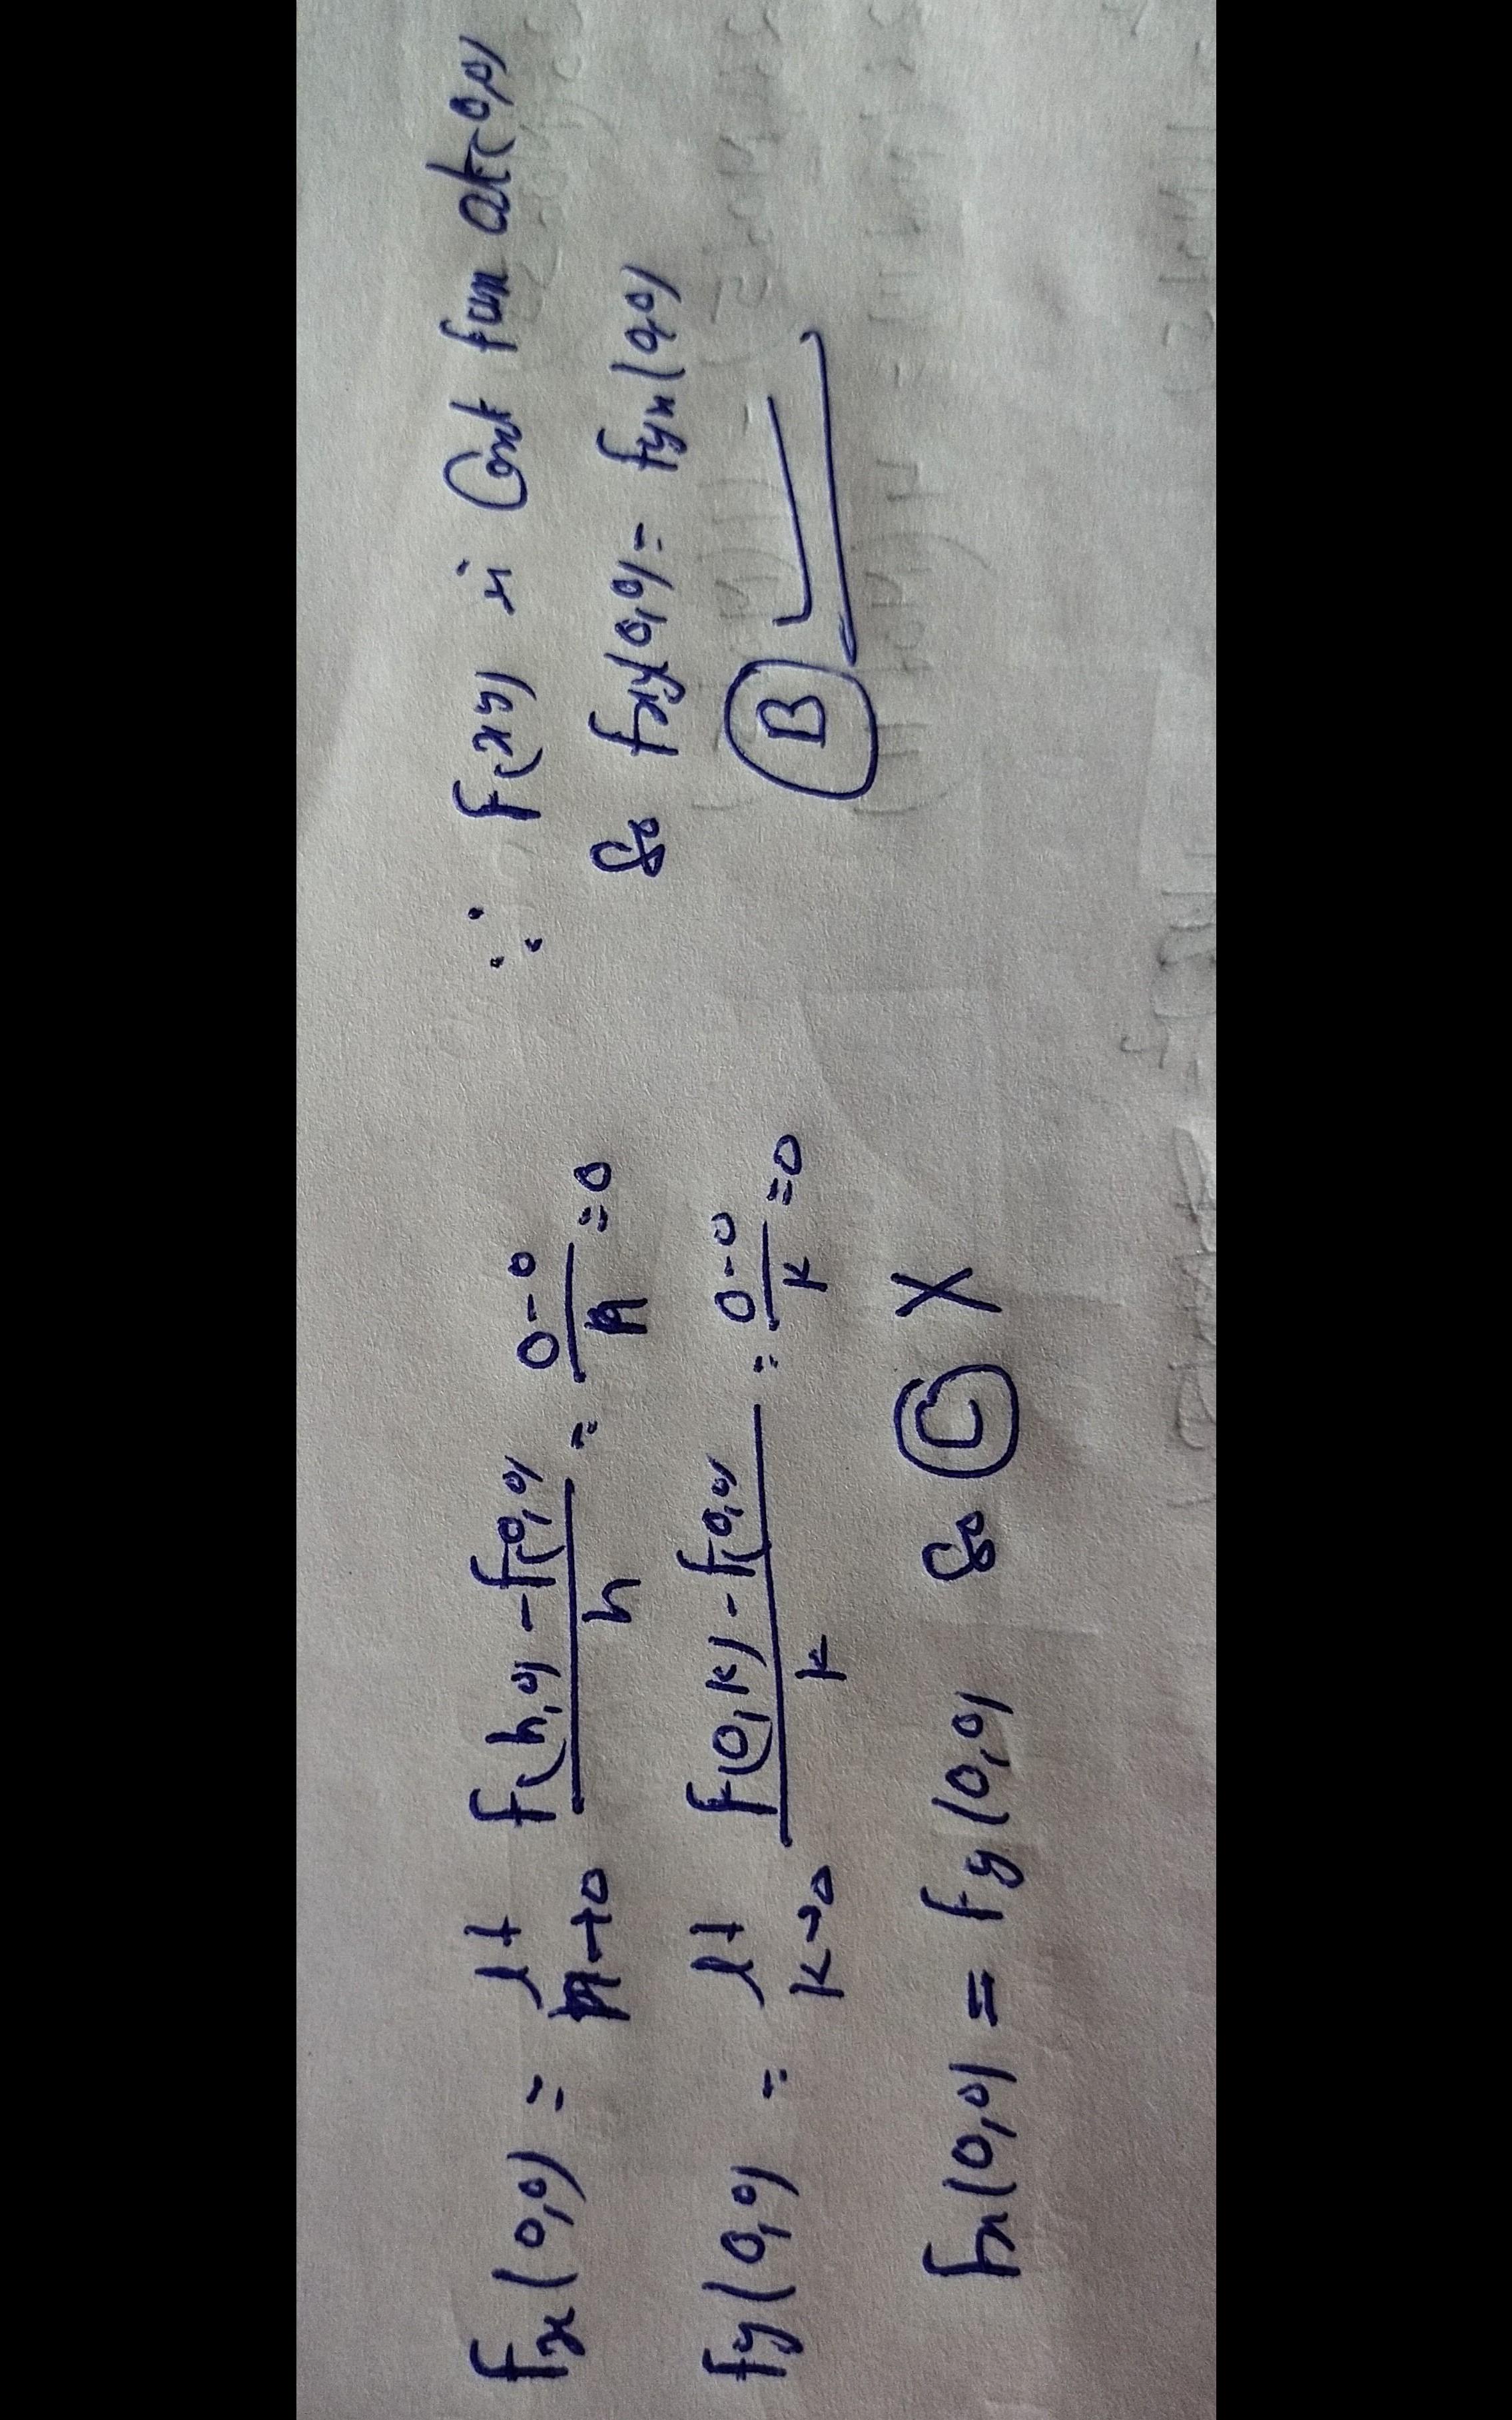 fx(0,0) = lt h→0 f(h,0) - f(0,0) / h = 0-0 / h = 0
fy(0,0) = lt k→0 f(0,k) - f(0,0) / k = 0-0 / k = 0
fx(0,0) = fy(0,0) & C X
∵ f(x,y) is Cont fun at (0,0)
So fxy(0,0) = fyx(0,0)
B